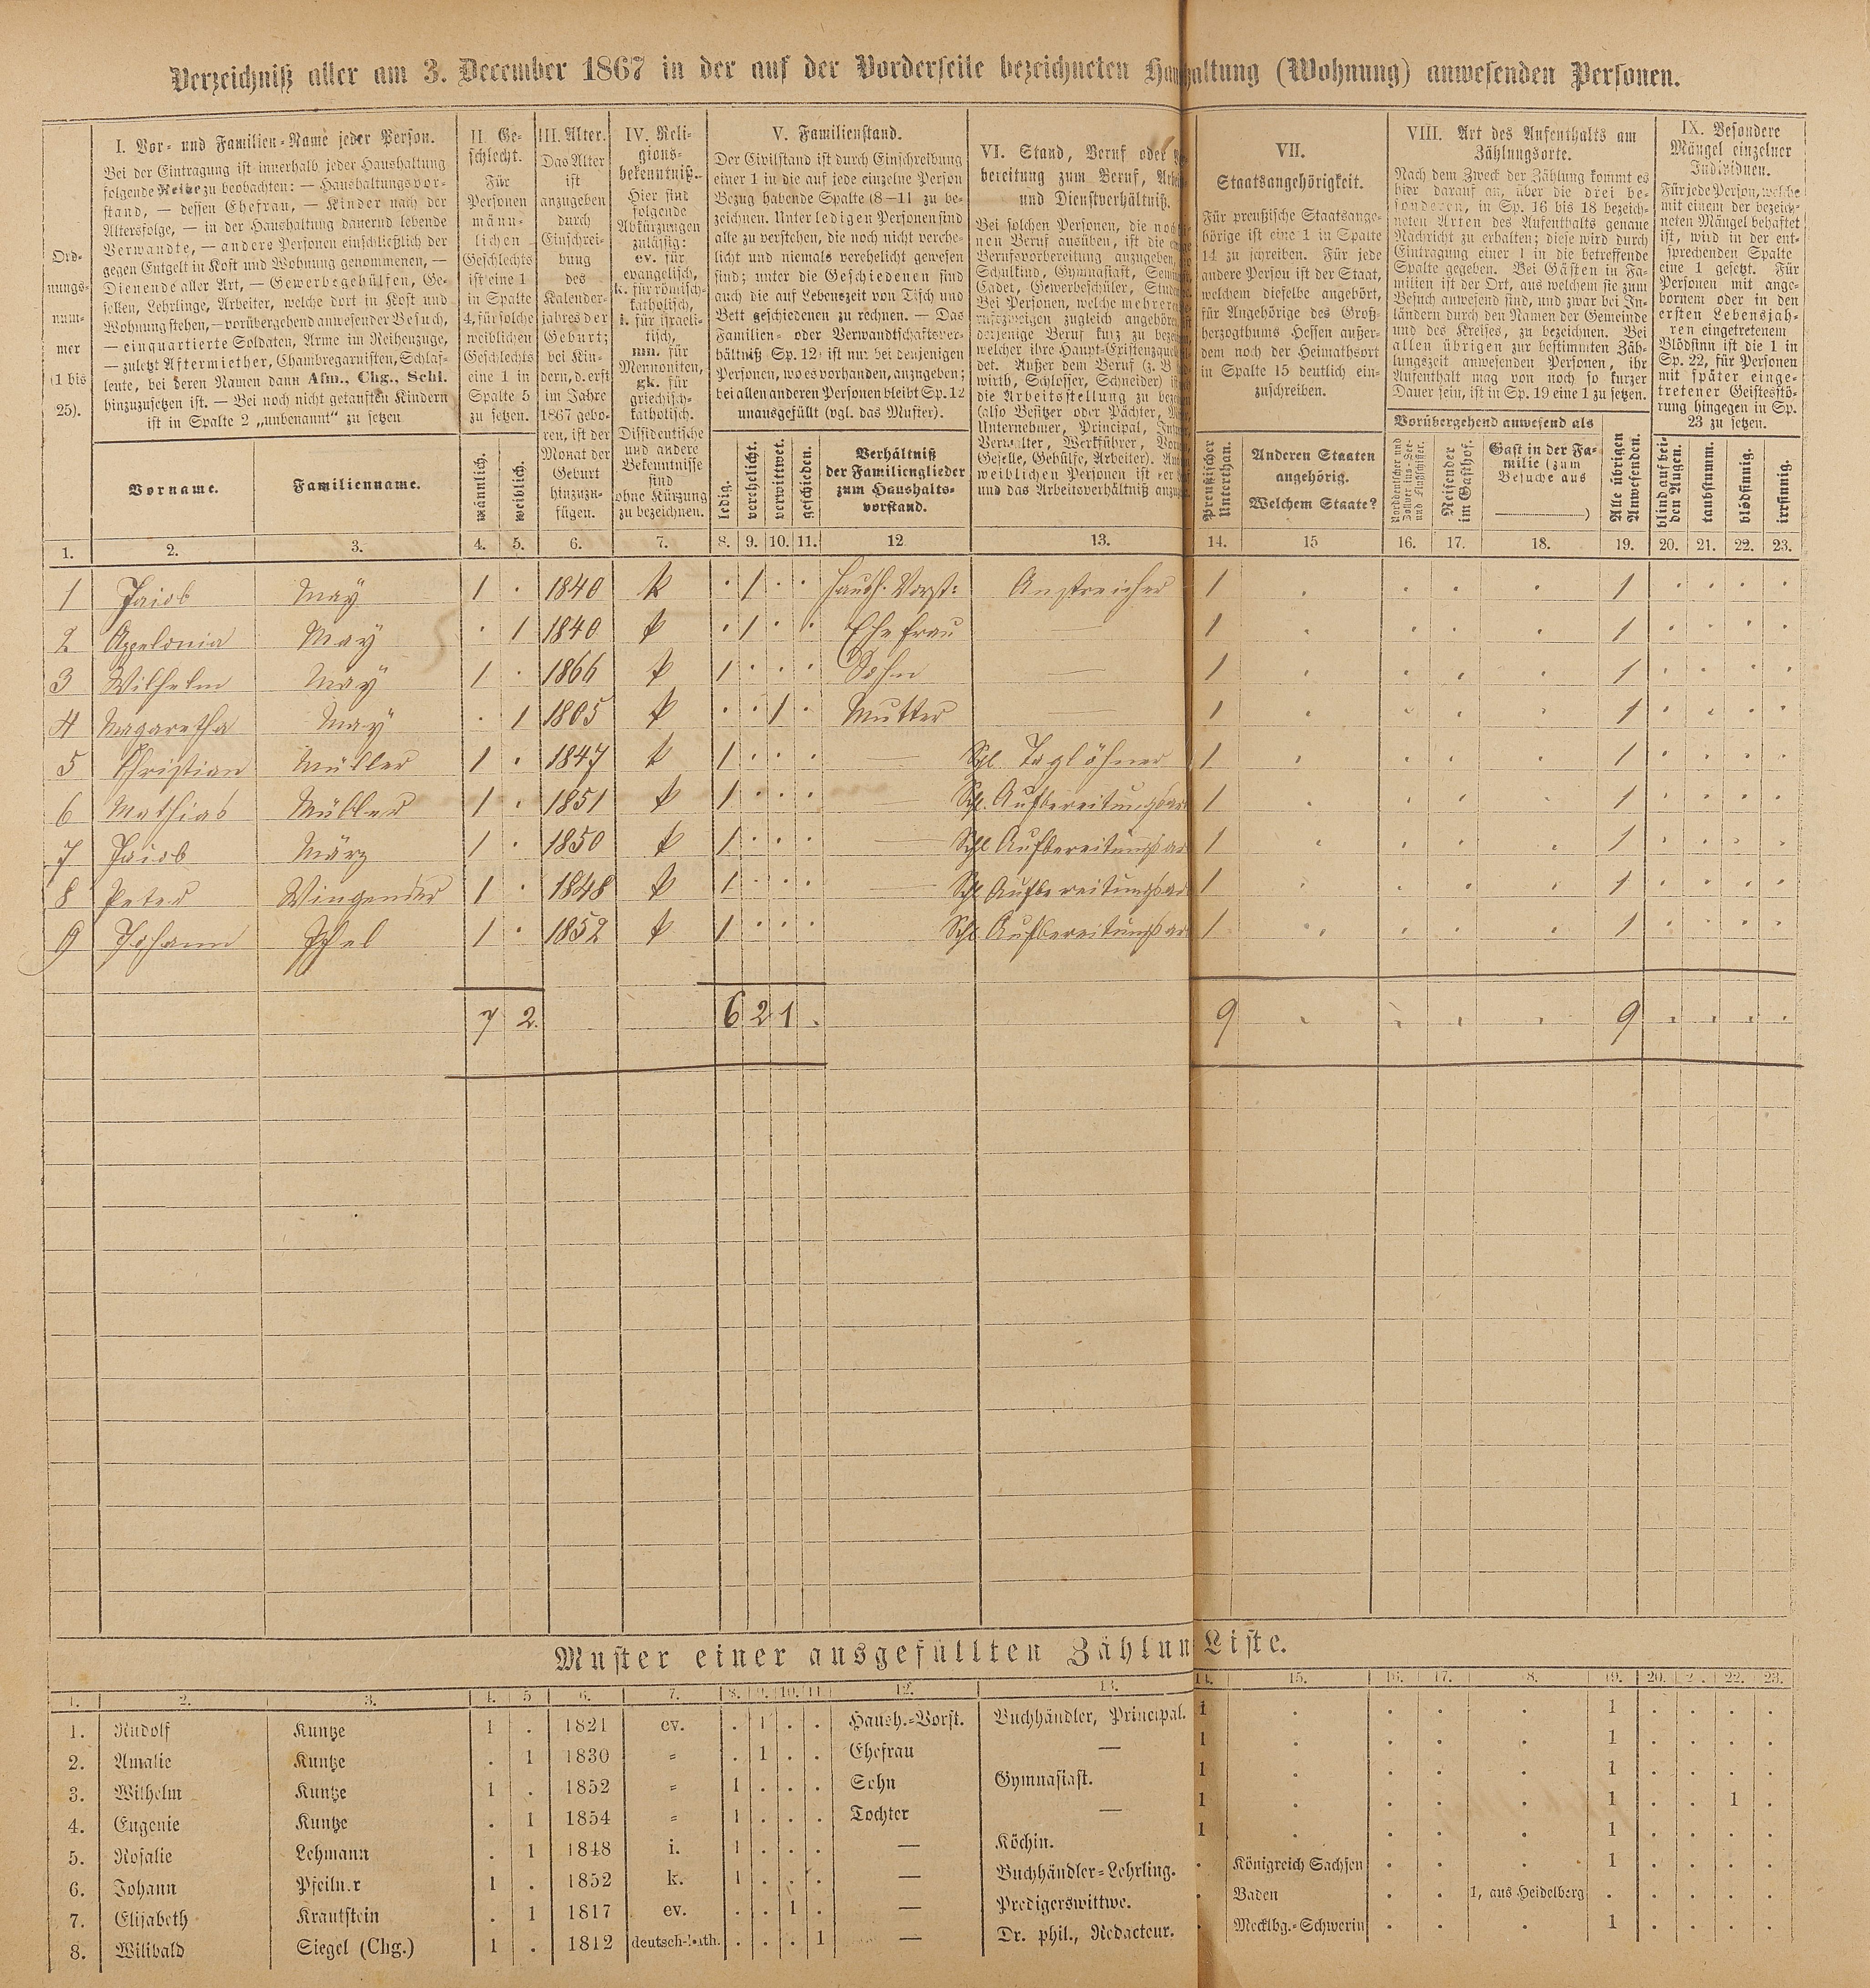 Verzeichniß aller am 3. December 1867 in der auf der Vorderseite bezeichneten Haushaltung (Wohnung) anwesenden Personen.
Ord-
nungs-
num-
mer
(1 bis
25).
I. Vor- und Familien-Name jeder Person.
Bei der Eintragung ist innerhalb jeder Haushaltung
folgende Reihe zu beobachten: — Haushaltungsvor-
stand, — dessen Ehefrau, — Kinder nach der
Altersfolge, — in der Haushaltung dauernd lebende
Verwandte, — andere Personen einschließlich der
gegen Entgelt in Kost und Wohnung genommenen, —
Dienende aller Art, — Gewerbegehülfen, Ge-
sellen, Lehrlinge, Arbeiter, welche dort in Kost und
Wohnung stehen, — vorübergehend anwesender Besuch,
— einquartierte Soldaten, Arme im Reihenzuge,
— zuletzt Aftermiether, Chambregarnisten, Schlaf-
leute, bei deren Namen dann Afm., Chg., Schl.
hinzuzusetzen ist. — Bei noch nicht getauften Kindern
ist in Spalte 2 „unbenannt“ zu setzen
Vorname.
Familienname.
II. Ge-
schlecht.
Für
Personen
männ-
lichen
Geschlechts
ist eine 1
in Spalte
4, für solche
weiblichen
Geschlechts
eine 1 in
Spalte 5
zu setzen.
männlich.
weiblich.
III. Alter.
Das Alter
ist
anzugeben
durch
Einschrei-
bung
des
Kalender-
jahres der
Geburt;
bei Kin-
dern, d. erst
im Jahre
1867 gebo-
ren, ist der
Monat der
Geburt
hinzuzu-
fügen.
IV. Reli-
gions-
bekenntniß.
Hier sind
folgende
Abkürzungen
zulässig:
ev. für
evangelisch,
k. für römisch-
katholisch,
i. für israeli-
tisch,
mn. für
Mennoniten,
gk. für
griechisch-
katholisch.
Dissidentische
und andere
Bekenntnisse
sind
ohne Kürzung
zu bezeichnen.
V. Familienstand.
Der Civilstand ist durch Einschreibung
einer 1 in die auf jede einzelne Person
Bezug habende Spalte (8—11) zu be-
zeichnen. Unter ledigen Personen sind
alle zu verstehen, die noch nicht verehe-
licht und niemals verehelicht gewesen
sind; unter die Geschiedenen sind
auch die auf Lebenszeit von Tisch und
Bett geschiedenen zu rechnen. — Das
Familien- oder Verwandtschaftsver-
hältniß Sp. 12) ist nur bei denjenigen
Personen, wo es vorhanden, anzugeben;
bei allen anderen Personen bleibt Sp. 12
unausgefüllt (vgl. das Muster).
ledig.
verehelicht.
verwittwet.
geschieden.
Verhältniß
der Familienglieder
zum Haushalts-
vorstand.
VI. Stand, Beruf oder
bereitung zum Beruf,
und Dienstverhältniß.
Bei solchen Personen, die
nen Beruf ausüben, ist die
Berufsvorbereitung anzugeben,
Schulkind, Gymnasiast,
Cadet, Gewerbeschüler,
Bei Personen, welche mehrere
rufszweigen zugleich angehören,
derjenige Beruf kurz zu
welcher ihre Haupt-Existenz
det. Außer dem Beruf (z. B.
wirth, Schlosser, Schneider)
die Arbeitsstellung zu
(also Besitzer oder Pächter,
Unternehmer, Principal,
Verwalter, Werkführer,
Geselle, Gehülfe, Arbeiter).
weiblichen Personen ist der
und das Arbeitsverhältniß
VII.
Staatsangehörigkeit.
Für preußische Staatsange-
hörige ist eine 1 in Spalte
14 zu schreiben. Für jede
andere Person ist der Staat,
welchem dieselbe angehört,
für Angehörige des Groß-
herzogthums Hessen außer-
dem noch der Heimathsort
in Spalte 15 deutlich ein-
zuschreiben.
Preußischer
Unterthan.
Anderen Staaten
angehörig.
Welchem Staate?
VIII. Art des Aufenthalts am
Zählungsorte.
Nach dem Zweck der Zählung kommt es
hier darauf an, über die drei be-
sonderen, in Sp. 16 bis 18 bezeich-
neten Arten des Aufenthalts genaue
Nachricht zu erhalten; diese wird durch
Eintragung einer 1 in die betreffende
Spalte gegeben. Bei Gästen in Fa-
milien ist der Ort, aus welchem sie zum
Besuch anwesend sind, und zwar bei In-
ländern durch den Namen der Gemeinde
und des Kreises, zu bezeichnen. Bei
allen übrigen zur bestimmten Zäh-
lungszeit anwesenden Personen, ihr
Aufenthalt mag von noch so kurzer
Dauer sein, ist in Sp. 19 eine 1 zu setzen.
Vorübergehend anwesend als
Norddeutscher und
Zollver.ins-See-
und Flußschiffer.
Reisender
im Gasthof.
Gast in der Fa-
milie (zum
Besuche aus
)
Alle übrigen
Anwesenden.
IX. Besondere
Mängel einzelner
Individuen.
Für jede Person, welche
mit einem der bezeich-
neten Mängel behaftet
ist, wird in der ent-
sprechenden Spalte
eine 1 gesetzt. Für
Personen mit ange-
bornem oder in den
ersten Lebensjah-
ren eingetretenem
Blödsinn ist die 1 in
Sp. 22, für Personen
mit später einge-
tretener Geistesstö-
rung hingegen in Sp.
23 zu setzen.
blind auf bei-
den Augen.
taubstumm.
blödsinnig.
irrsinnig.
1. 2. 3. 4. 5. 6. 7. 8. 9. 10. 11. 12 13. 14. 15 16. 17. 18. 19. 20. 21. 22. 23.
1 Jacob May 1 . 1840 k . 1 . . Haush. Vorst: Anstreicher 1 . . . . 1 . . . .
2 Appelonia May . 1 1840 k . 1 . . Ehefrau — 1 . . . . 1 . . . .
3 Wilhelm May 1 . 1866 k 1 . . . Sohn — 1 . . . . 1 . . . .
4 Magaretha May . 1 1805 k . . 1 . Mutter — 1 . . . . 1 . . . .
5 Christian Müller 1 . 1847 k 1 . . . — Schl. Taglöhner 1 . . . . 1 . . . .
6 Mathias Müller 1 . 1851 k 1 . . . — Schl. Aufbereitungsar 1 . . . . 1 . . . .
7 Jacob März 1 . 1850 k 1 . . . — Schl Aufbereitungsar 1 . . . . 1 . . . .
8 Peter Wingender 1 . 1848 k 1 . . . — Schl Aufbereitungsar 1 . . . . 1 . . . .
9 Johann 1 . 1852 k 1 . . . Schl Aufbereitungsar 1 . . . . 1 . . . .
7 2. 6 2 1 . 9 . . . . 9 . . . .
Muster einer ausgefüllten Zählun Liste.
1. 2. 3. 4. 5 6. 7. 8. 9. 10. 11 12. 13. 14. 15. 16. 17. 18. 19. 20. 21. 22. 23.
1. Rudolf Kuntze 1 . 1821 ev. . 1 . . Haush.-Vorst. Buchhändler, Principal. 1 . . . . 1 . . . .
2. Amalie Kuntze . 1 1830 „ . 1 . . Ehefrau — 1 . . . . 1 . . . .
3. Wilhelm Kuntze 1 . 1852 „ 1 . . . Sohn Gymnasiast. 1 . . . . 1 . . . .
4. Eugenie Kuntze . 1 1854 „ 1 . . . Tochter — 1 . . . . 1 . . 1 .
5. Rosalie Lehmann . 1 1848 i. 1 . . . — Köchin. 1 . . . . 1 . . . .
6. Johann Pfeiln.r 1 . 1852 k. 1 . . . — Buchhändler-Lehrling. . Königreich Sachsen . . . 1 . . . .
7. Elisabeth Krautstein . 1 1817 ev. . . 1 . — Predigerswittwe. . Baden . . 1, aus Heidelberg . . . . .
8. Wilibald Siegel (Chg.) 1 . 1812 deutsch-kath. . . . 1 — Dr. phil., Redacteur. . Mecklbg.-Schwerin . . . 1 . . . .